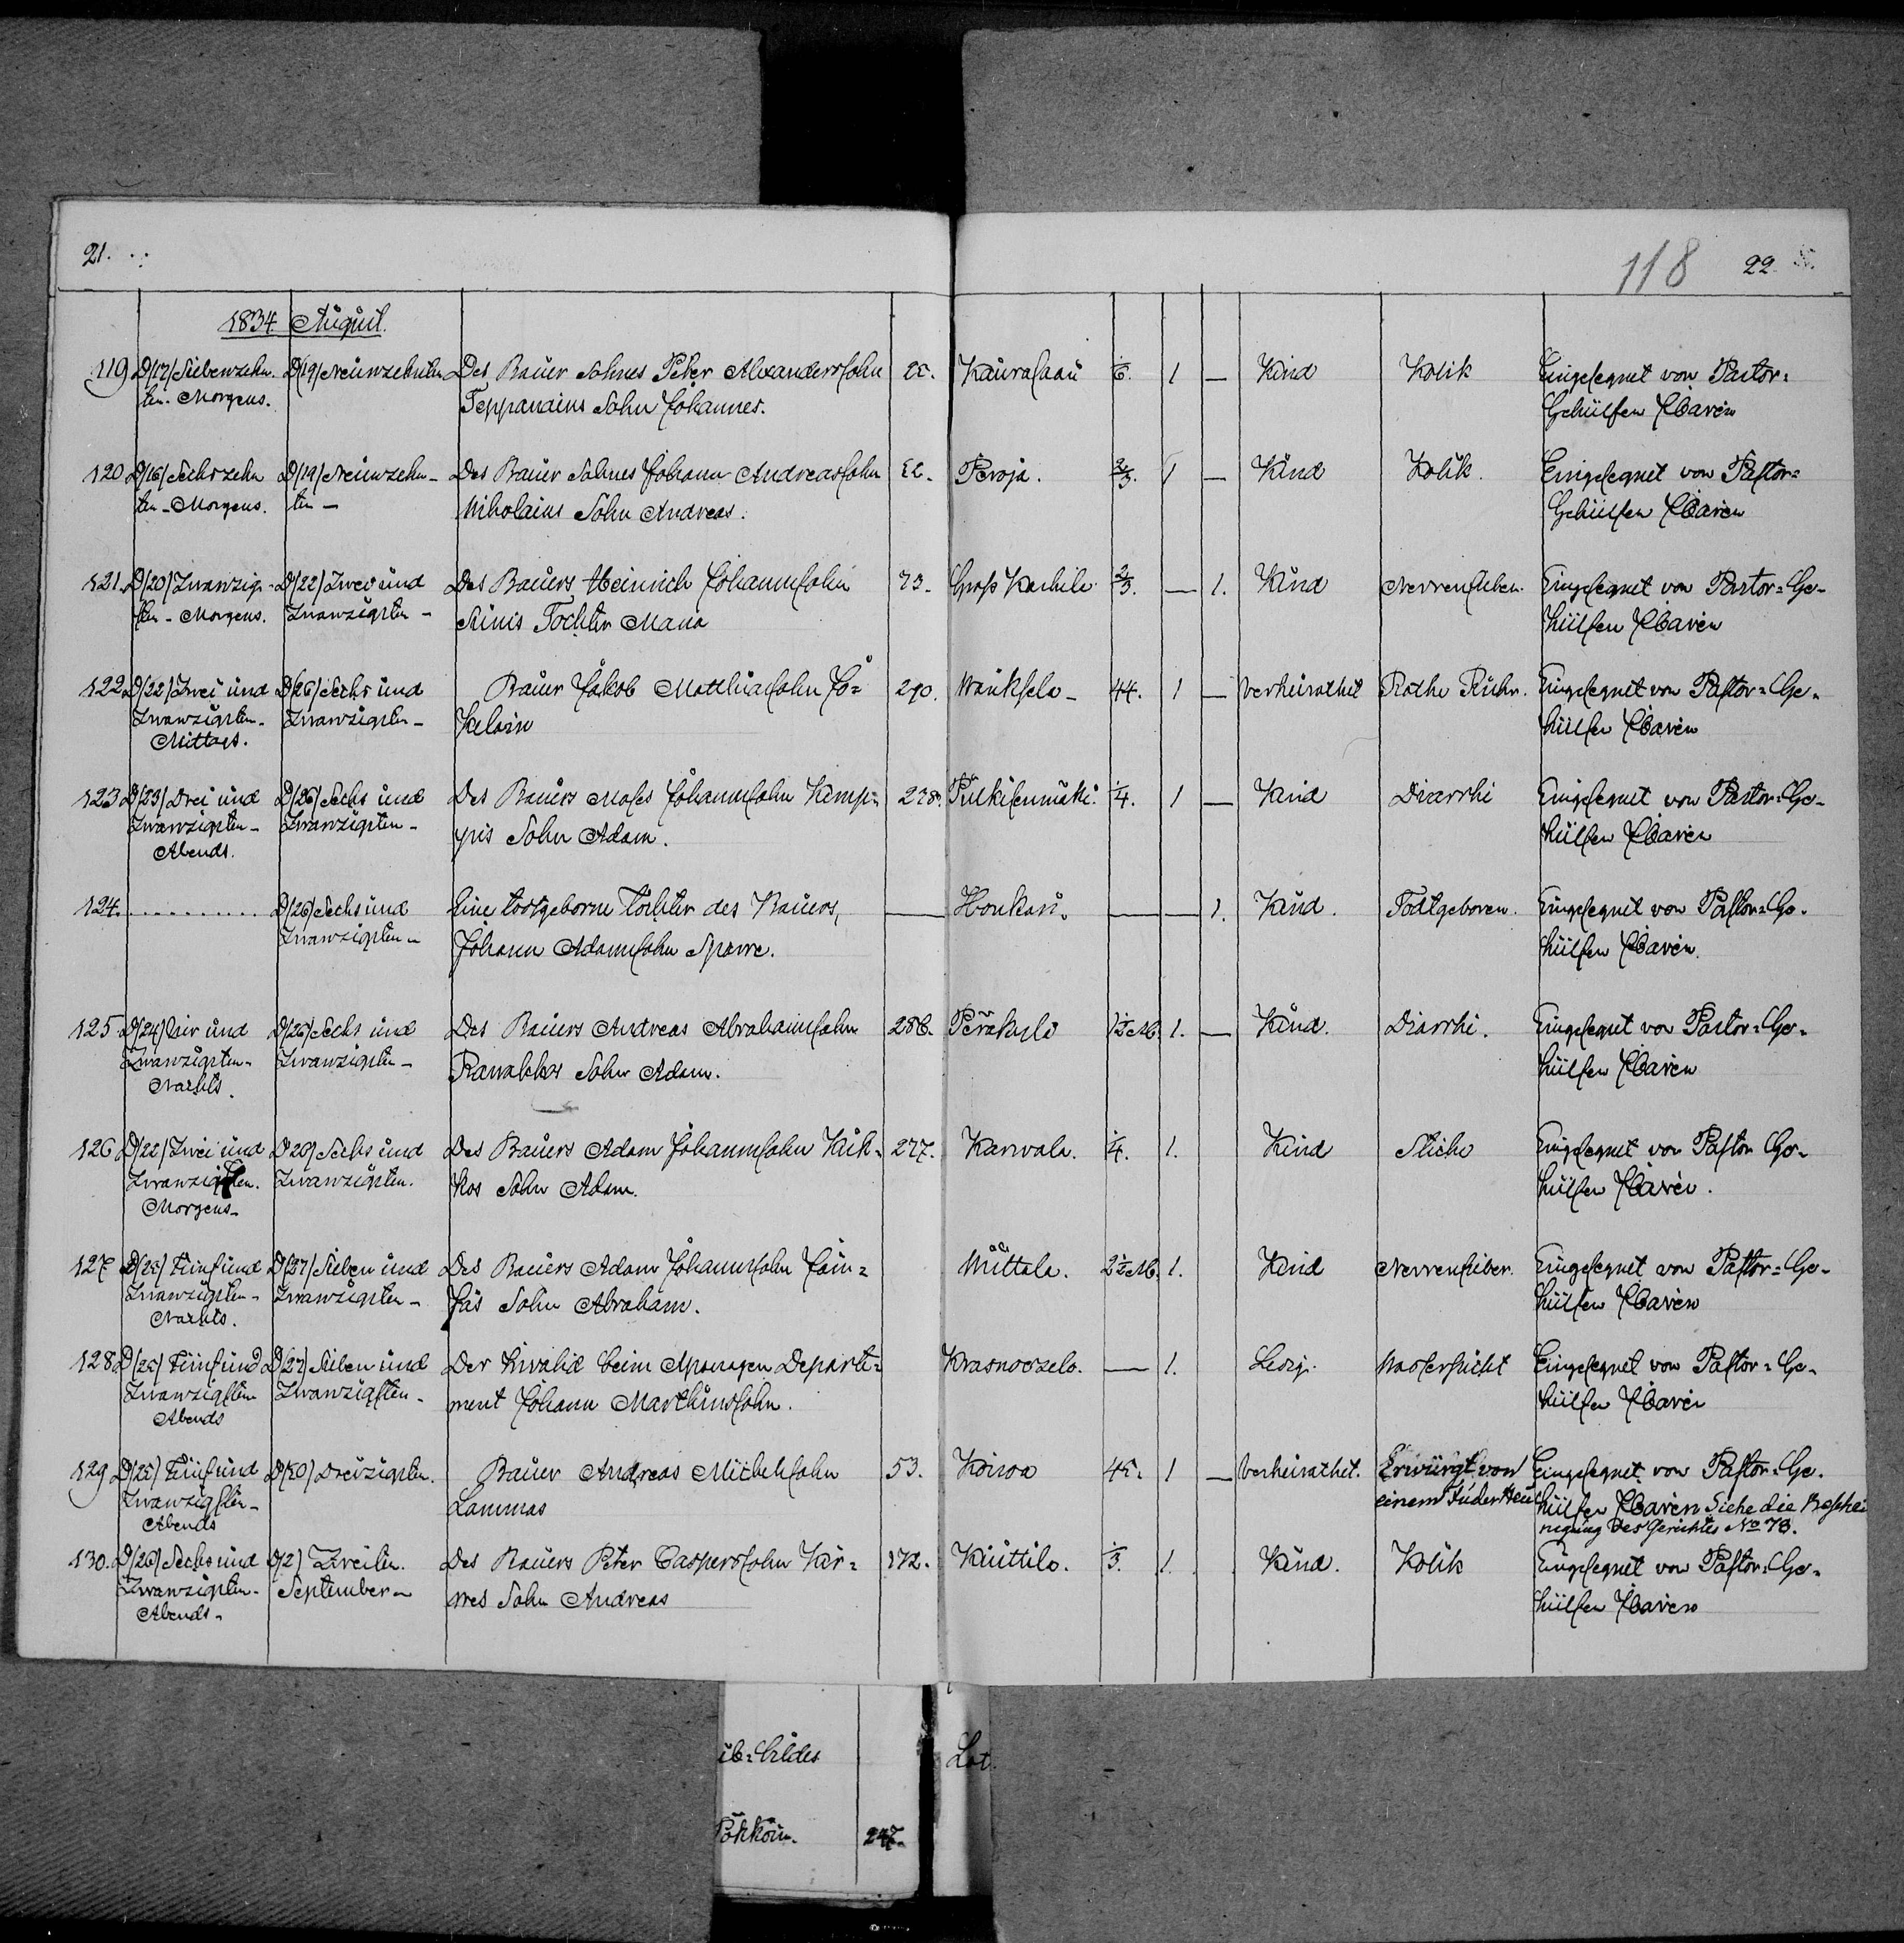 21.
118 22
1834 August.
119 D/17/ Siebenzehn- D/19/ Neunzehnten Des Bauer Sohnes Peter Alexandersohn 25. Kaurasaari 1/6. 1 — Kind Kolik Eingesegnet von Pastor-
ten- Morgens. Teppanains Sohn Johannes. Gehülfen
120 D/16/ Sechszehn D/19/ Neunzehn- Des Bauer Sohnes Johann Andreassohn Peroja. 2/3. 1 — Kind Kolik. Eingesegnet von Pastor-
ten- Morgens. ten — Nikolains Sohn Andreas. Gehülfen
121. D/20/ Zwanzig- D/22/ Zwei und Des Bauers Heinrich Johannsohn 73. Groß 2/3. — 1. Kind Nervenfieber. Eingesegnet von Pastor-Ge-
sten- Morgens. Zwanzigsten- Tochter Maria hülfen
122 D/22/ Zwei und D/26/ Sechs und Bauer Jakob Matthiassohn Jo- 290. 44. 1 — verheirathet Rothe Ruhr. Eingesegnet von Pastor-Ge-
Zwanzigsten- Zwanzigsten- hülfen
Mittags.
123 D/23/ Drei und D/26/ Sechs und Des Bauers Moses Johannsohn Kimp- 228. 1/4. 1 — Kind Diarrhi Eingesegnet von Pastor-Ge-
Zwanzigsten- Zwanzigsten- Sohn Adam. hülfen
Abends.
124. ............ D/26/ Sechs und Eine todtgeborne Tochter des Bauers, — — — 1. Kind. Todtgeboren. Eingesegnet von Pastor-Ge-
Zwanzigsten- Johann Adamsohn Sparre. hülfen
125 D/24/ Vier und D/26/ Sechs und Des Bauers Andreas Abrahamsohn 286. 1. — Kind. Diarrhi. Eingesegnet von Pastor-Ge-
Zwanzigsten- Zwanzigsten- Sohn Adam. hülfen
Nachts.
126 D/22/ Zwei und D 26/ Sechs und Des Bauers Adam Johannsohn Kuk- 277. Karwala. 1/4. 1. Kind Stiche Eingesegnet von Pastor Ge-
Zwanzigsten. Zwanzigsten. kos Sohn Adam. hülfen
Morgens-
127 D/25/ Fünf und D/27/ Sieben und Des Bauers Adam Johannsohn 2½ M. 1. Kind Nervenfieber. Eingesegnet von Pastor-Ge-
Zwanzigsten- Zwanzigsten- Sohn Abraham. hülfen
Nachts.
128 D/25/ Fünf und D/27/ Sieben und Der Invalid beim Apanagen Departe- — 1. Ledig. Wassersucht Eingesegnet von Pastor-Ge-
Zwanzigsten Zwanzigsten- ment Johann Marthinsohn. hülfen
Abends
129 D/25/ Fünf und D/30/ Dreizigsten. Bauer Andreas Michelssohn 53. 45. 1 — verheirathet. Erwürgt von Eingesegnet von Pastor-Ge-
Zwanzigsten- Lammas einem Fuder Heu hülfen Siehe die Beschei
Abends nigung des Gerichtes No 78.
130. D/26/ Sechs und D/2/ Zweiten. Des Bauers Peter Caspersohn Kir- 172. Kuttila. 1/3. 1. Kind. Kolik Eingesegnet von Pastor-Ge-
Zwanzigsten- September- wes Sohn Andreas hülfen
Abends-
247.